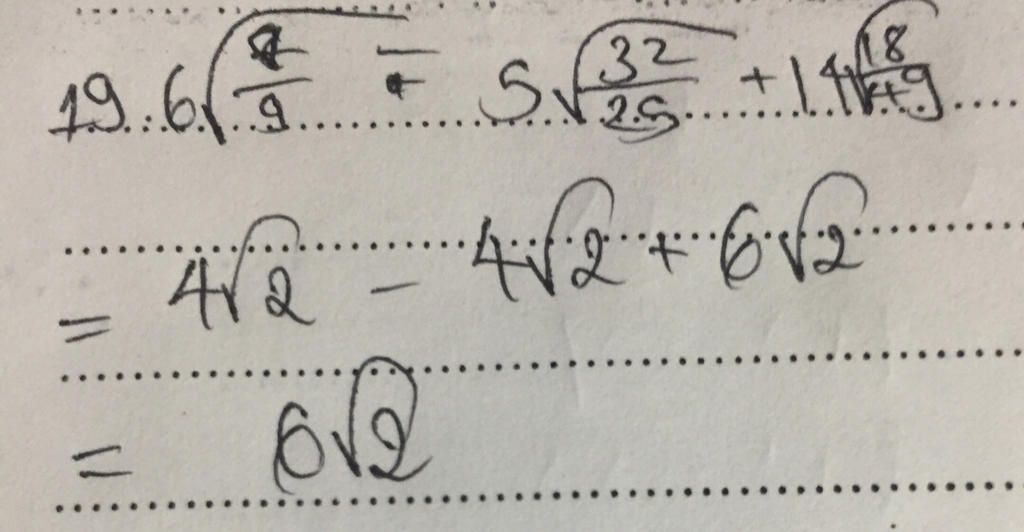 19. 6√(8/9) - 5√(32/25) + 14√(18/49)
= 4√2 - 4√2 + 6√2
= 6√2